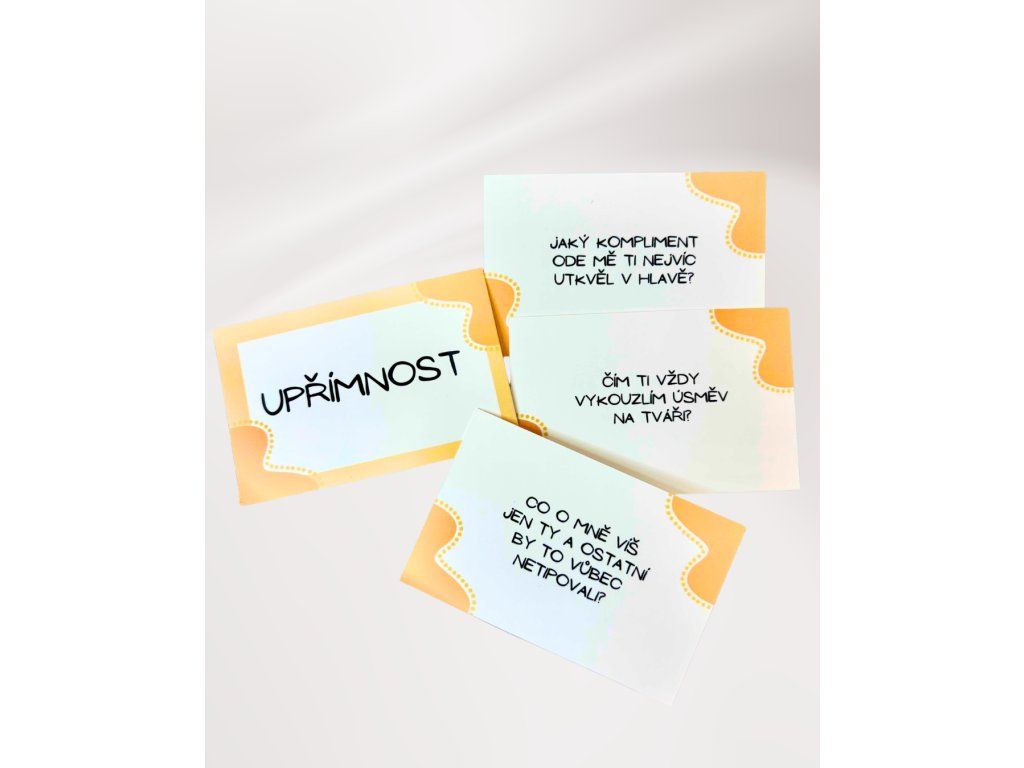 JAKÝ KOMPLIMENT
ODE MĚ TI NEJVÍC
UTKVĚL V HLAVĚ?
UPŘÍMNOST
ČÍM TI VŽDY
VYKOUZLÍM ÚSMĚV
NA TVÁŘI?
CO O MNĚ VÍŠ
JEN TY A OSTATNÍ
BY TO VŮBEC
NETIPOVALI?